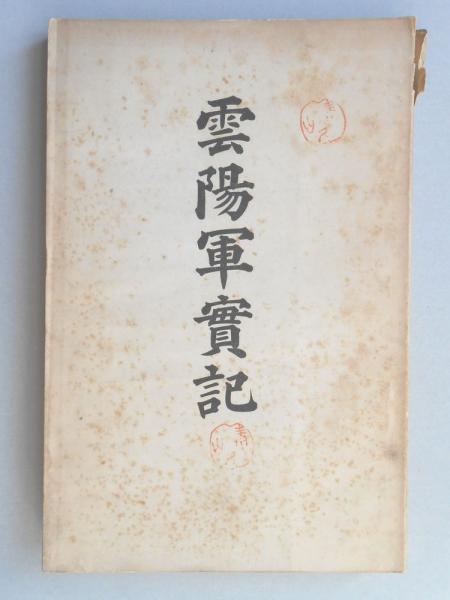 雲陽軍實記